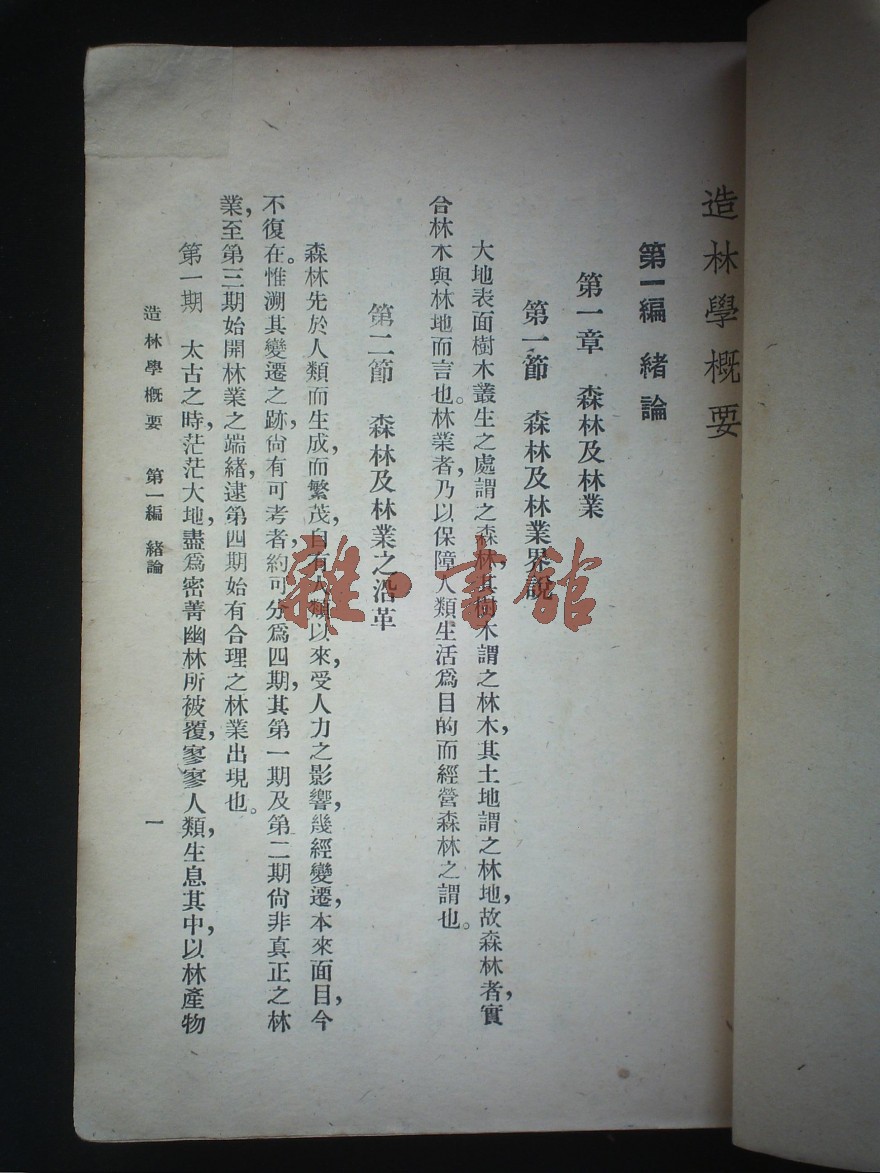 造林學概要
第一編 緒論
第一章 森林及林業
第一節 森林及林業界說
大地表面樹木叢生之處謂之森林,其樹木謂之林木,其土地謂之林地,故森林者,實
合林木與林地而言也。林業者,乃以保障人類生活爲目的而經營森林之謂也。
第二節 森林及林業之沿革
森林先於人類而生成而繁茂,自有人類以來,受人力之影響,幾經變遷,本來面目,今
不復在。惟溯其變遷之跡,尙有可考者,約可分爲四期,其第一期及第二期尙非真正之林
業,至第三期始開林業之端緒,逮第四期始有合理之林業出現也。
第一期 太古之時,茫茫大地,盡爲密菁幽林所被覆,寥寥人類,生息其中,以林產物
造林學概要 第一編 緒論 一
雜·書館